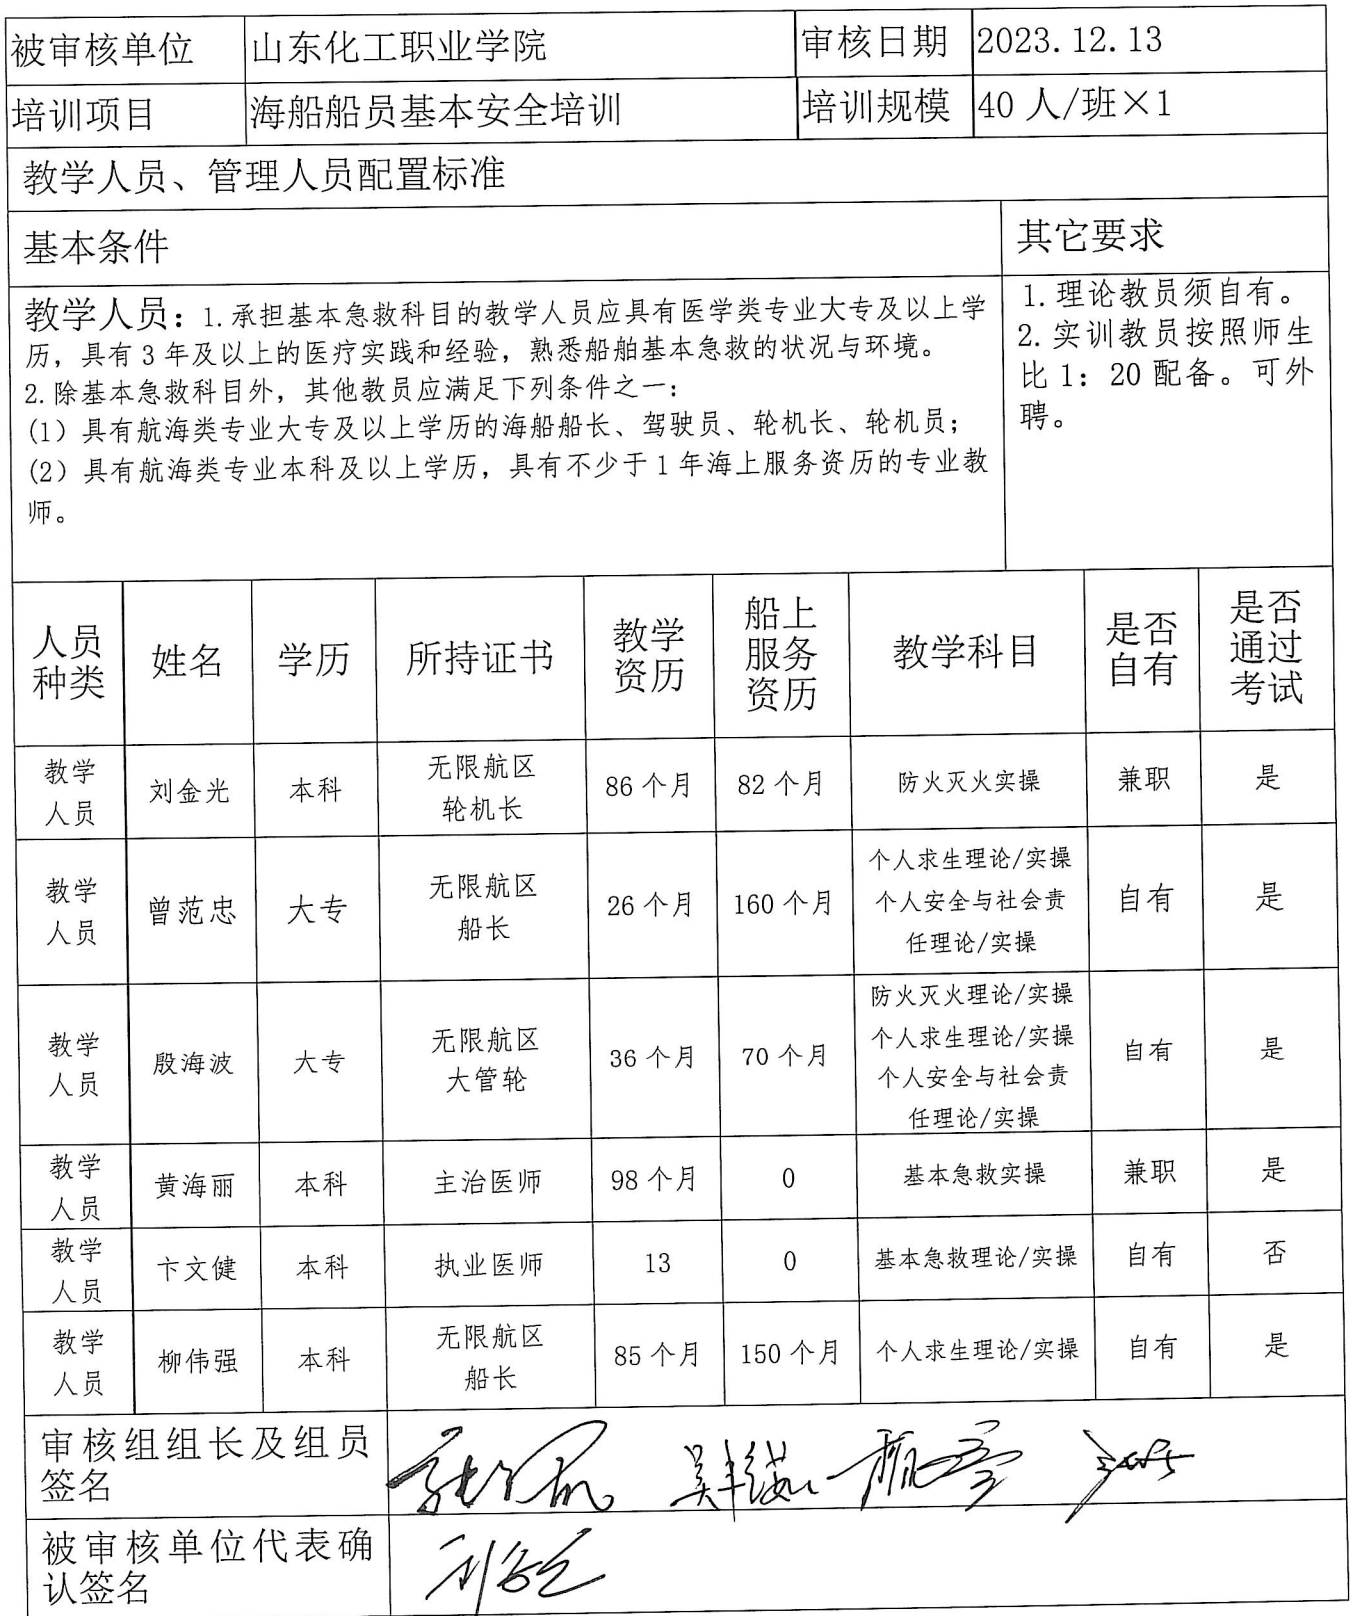 被审核单位 山东化工职业学院 审核日期 2023.12.13
培训项目 海船船员基本安全培训 培训规模 40 人/班×1
教学人员、管理人员配置标准
基本条件 其它要求
教学人员：1.承担基本急救科目的教学人员应具有医学类专业大专及以上学
历，具有 3 年及以上的医疗实践和经验，熟悉船舶基本急救的状况与环境。
2.除基本急救科目外，其他教员应满足下列条件之一：
(1）具有航海类专业大专及以上学历的海船船长、驾驶员、轮机长、轮机员；
(2）具有航海类专业本科及以上学历，具有不少于 1 年海上服务资历的专业教
师。
1.理论教员须自有。
2.实训教员按照师生
比 1：20 配备。可外
聘。
人员
种类
姓名
学历
所持证书
教学
资历
船上
服务
资历
教学科目
是否
自有
是否
通过
考试
教学
人员
刘金光
本科
无限航区
轮机长
86 个月
82 个月
防火灭火实操
兼职
是
教学
人员
曾范忠
大专
无限航区
船长
26 个月
160 个月
个人求生理论/实操
个人安全与社会责
任理论/实操
自有
是
教学
人员
殷海波
大专
无限航区
大管轮
36 个月
70 个月
防火灭火理论/实操
个人求生理论/实操
个人安全与社会责
任理论/实操
自有
是
教学
人员
黄海丽
本科
主治医师
98 个月
0
基本急救实操
兼职
是
教学
人员
卞文健
本科
执业医师
13
0
基本急救理论/实操
自有
否
教学
人员
柳伟强
本科
无限航区
船长
85 个月
150 个月
个人求生理论/实操
自有
是
审核组组长及组员
签名
被审核单位代表确
认签名